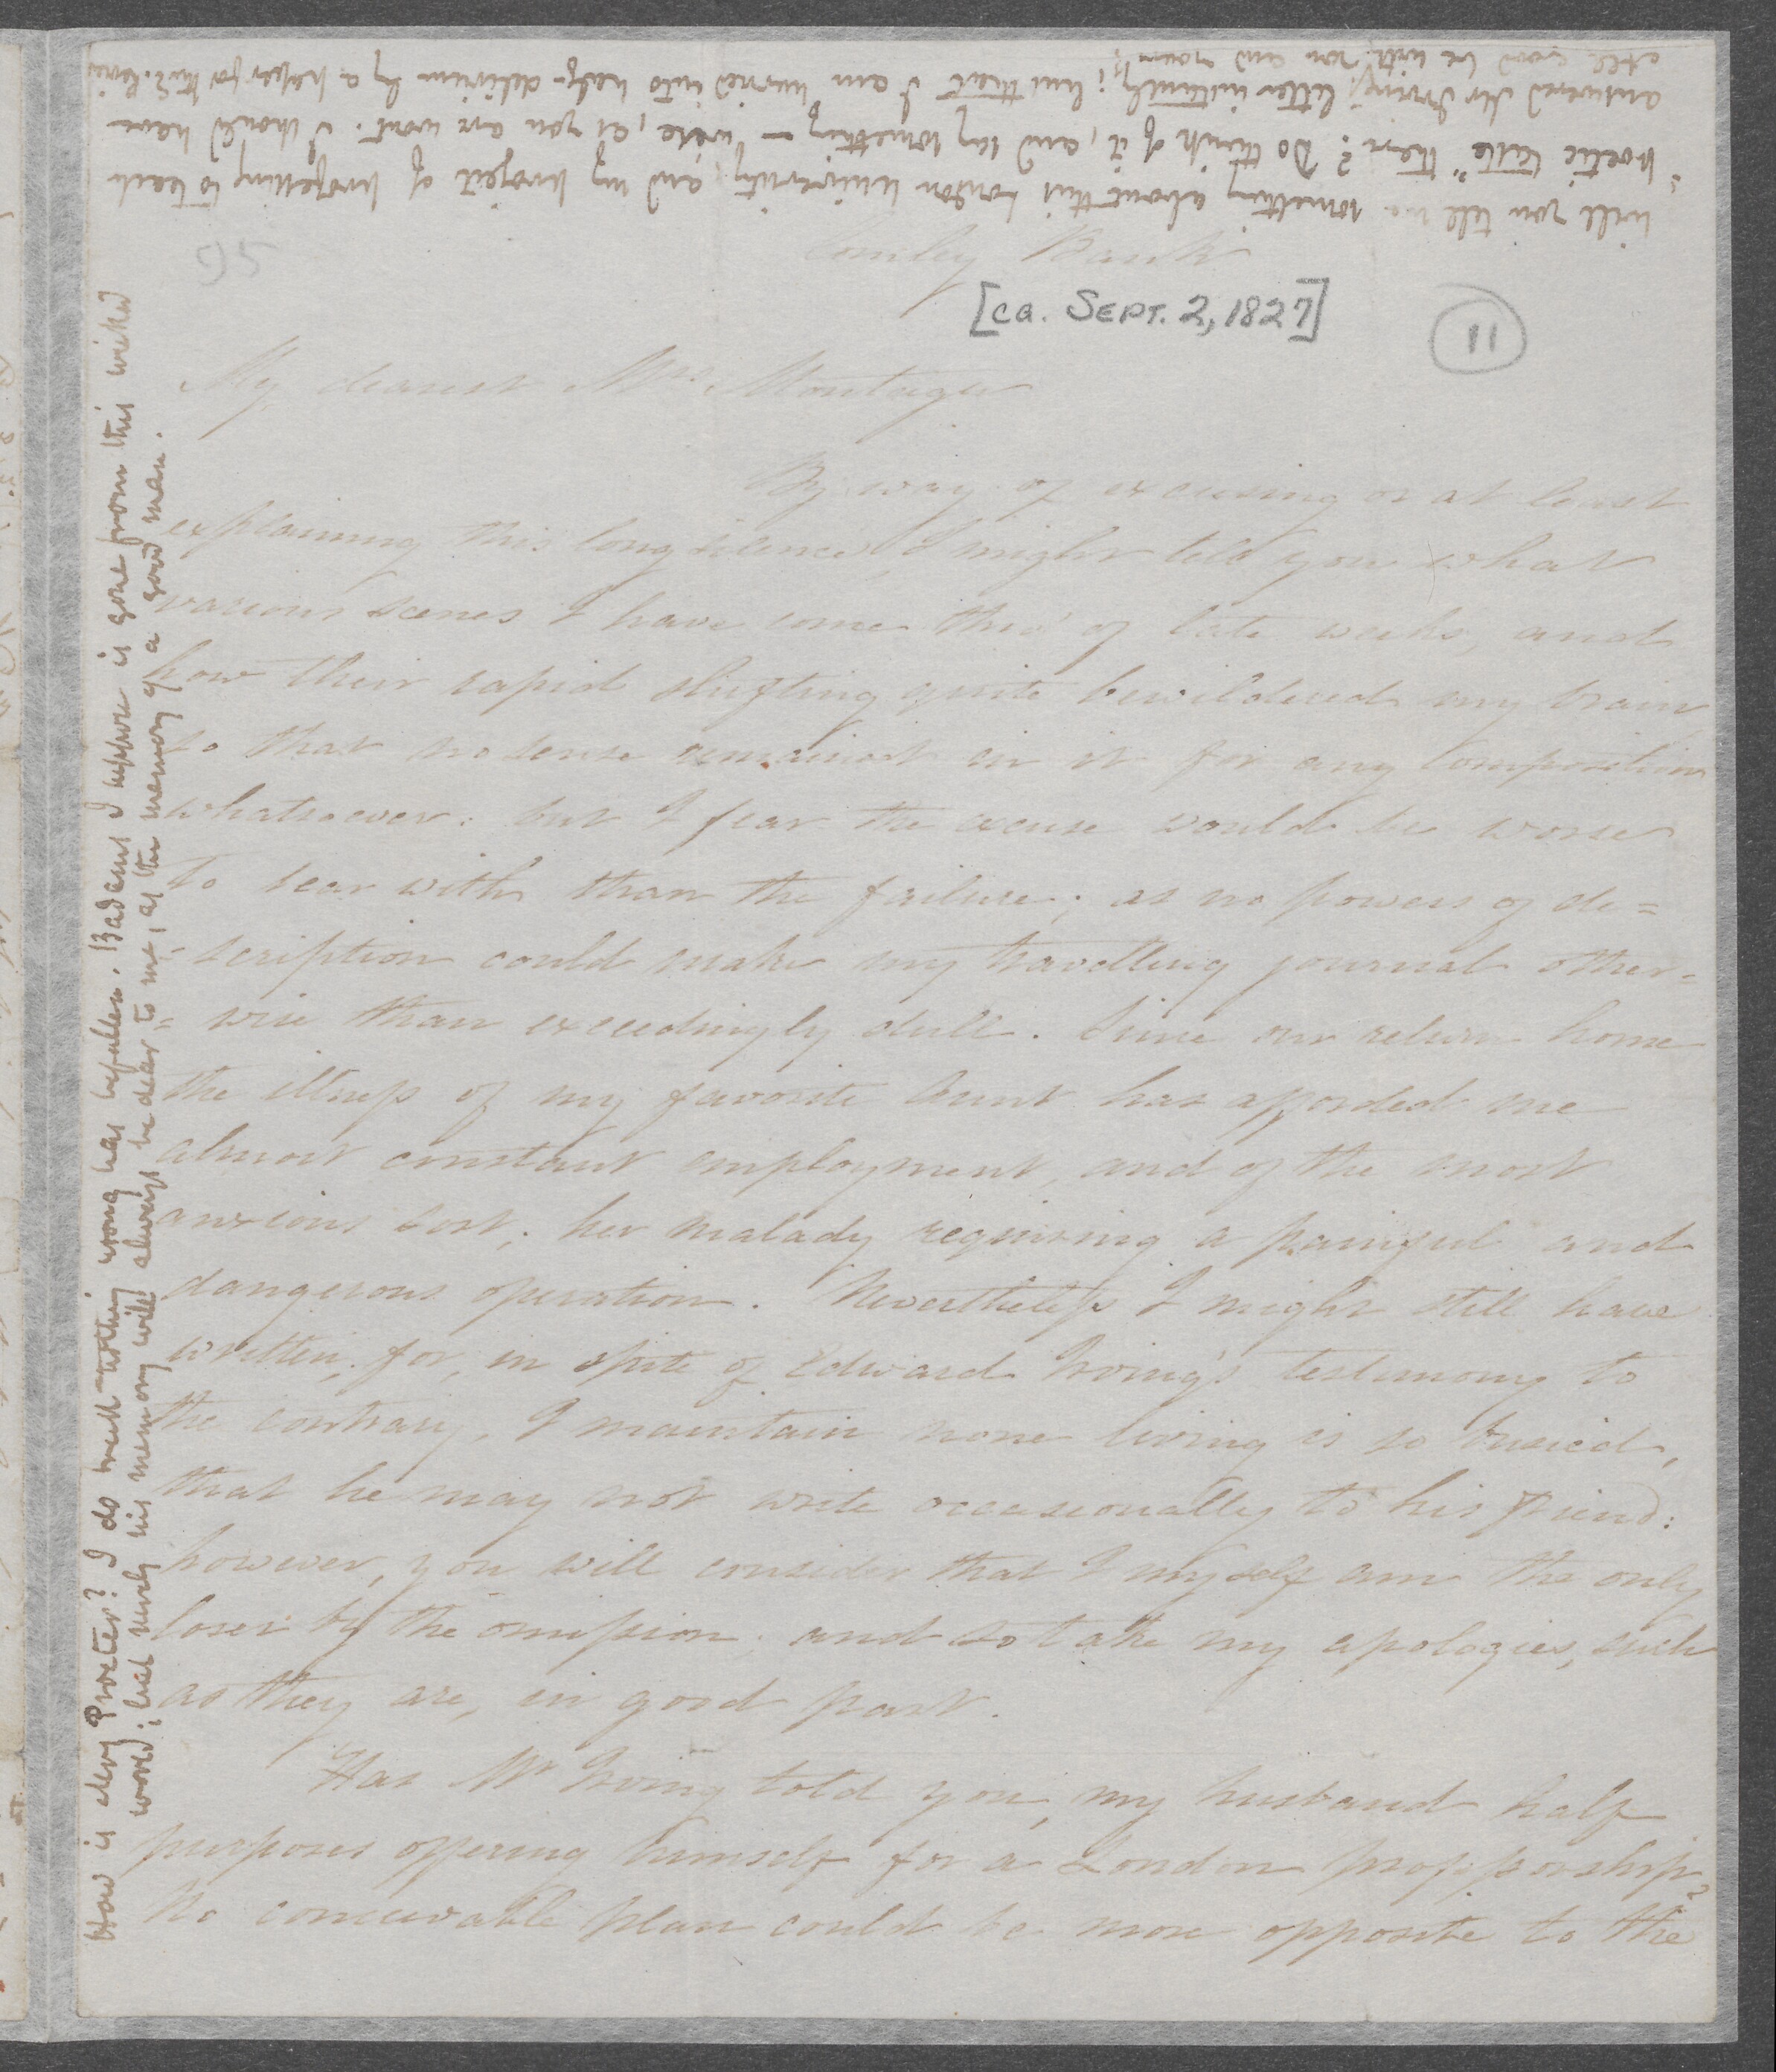 will you tell me something about this London University, and my project of professing to teach
"poetic taste" there? Do think of it, and say something — wise, as you are wont. I should have
answered Mr Irving's letter instantly; but that I am hurried into half-delirium by a paper for the E. Review
All good be with you and yours!
95
Comley Bank
[ca. SEPT. 2, 1827]
11
My dearest Mrs Montagu
By way of excusing or at least
explaining this long silence, I might tell you what
various scenes I have come thro' of late weeks, and
how their rapid shifting quite bewildered my brain
so that no sense remained in it for any composition
whatsoever: but I fear the excuse would be worse
to bear with than the failure; as no powers of de=
=scription could make my travelling journal other=
=wise than exceedingly dull. Since our return home
the illness of my favorite Aunt has afforded me
almost constant employment, and of the most
anxious sort; her malady requiring a painful and
dangerous operation. Nevertheless I might still have
written, for, in spite of Edward Irving's testimony to
the contrary, I maintain none living is so busied,
that he may not write occasionally to his friend:
however, you will consider that I myself am the only
loser by the omission and so take my apologies, such
as they are, in good part.
Has Mr Irving told you, my husband half
purposes offering himself for a London professorship?
No conceivable plan could be more opposite to the
How is dear Procter? I do trust nothing wrong has befallen. Badams I suppose is gone from this wicked
world; but surely his memory will always be dear to me, as the memory of a good man.